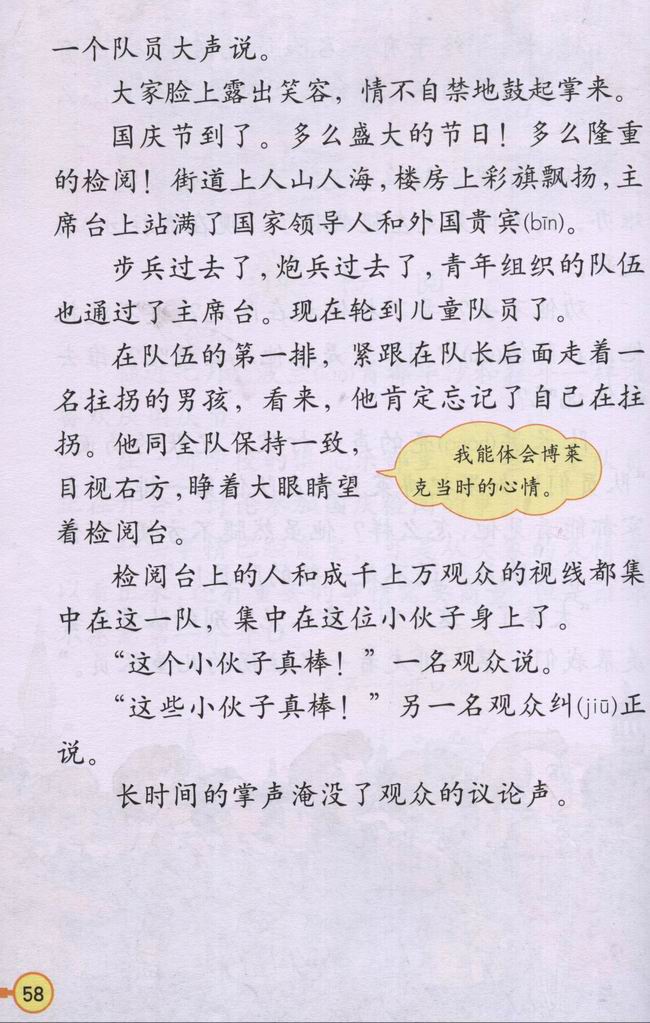 一个队员大声说。
大家脸上露出笑容，情不自禁地鼓起掌来。
国庆节到了。多么盛大的节日！多么隆重
的检阅！街道上人山人海，楼房上彩旗飘扬，主
席台上站满了国家领导人和外国贵宾(bīn)。
步兵过去了，炮兵过去了，青年组织的队伍
也通过了主席台。现在轮到儿童队员了。
在队伍的第一排，紧跟在队长后面走着一
名拄拐的男孩，看来，他肯定忘记了自己在拄
拐。他同全队保持一致，
目视右方，睁着大眼睛望
着检阅台。
我能体会博莱
克当时的心情。
检阅台上的人和成千上万观众的视线都集
中在这一队，集中在这位小伙子身上了。
“这个小伙子真棒！”一名观众说。
“这些小伙子真棒！”另一名观众纠(jiū)正
说。
长时间的掌声淹没了观众的议论声。
58